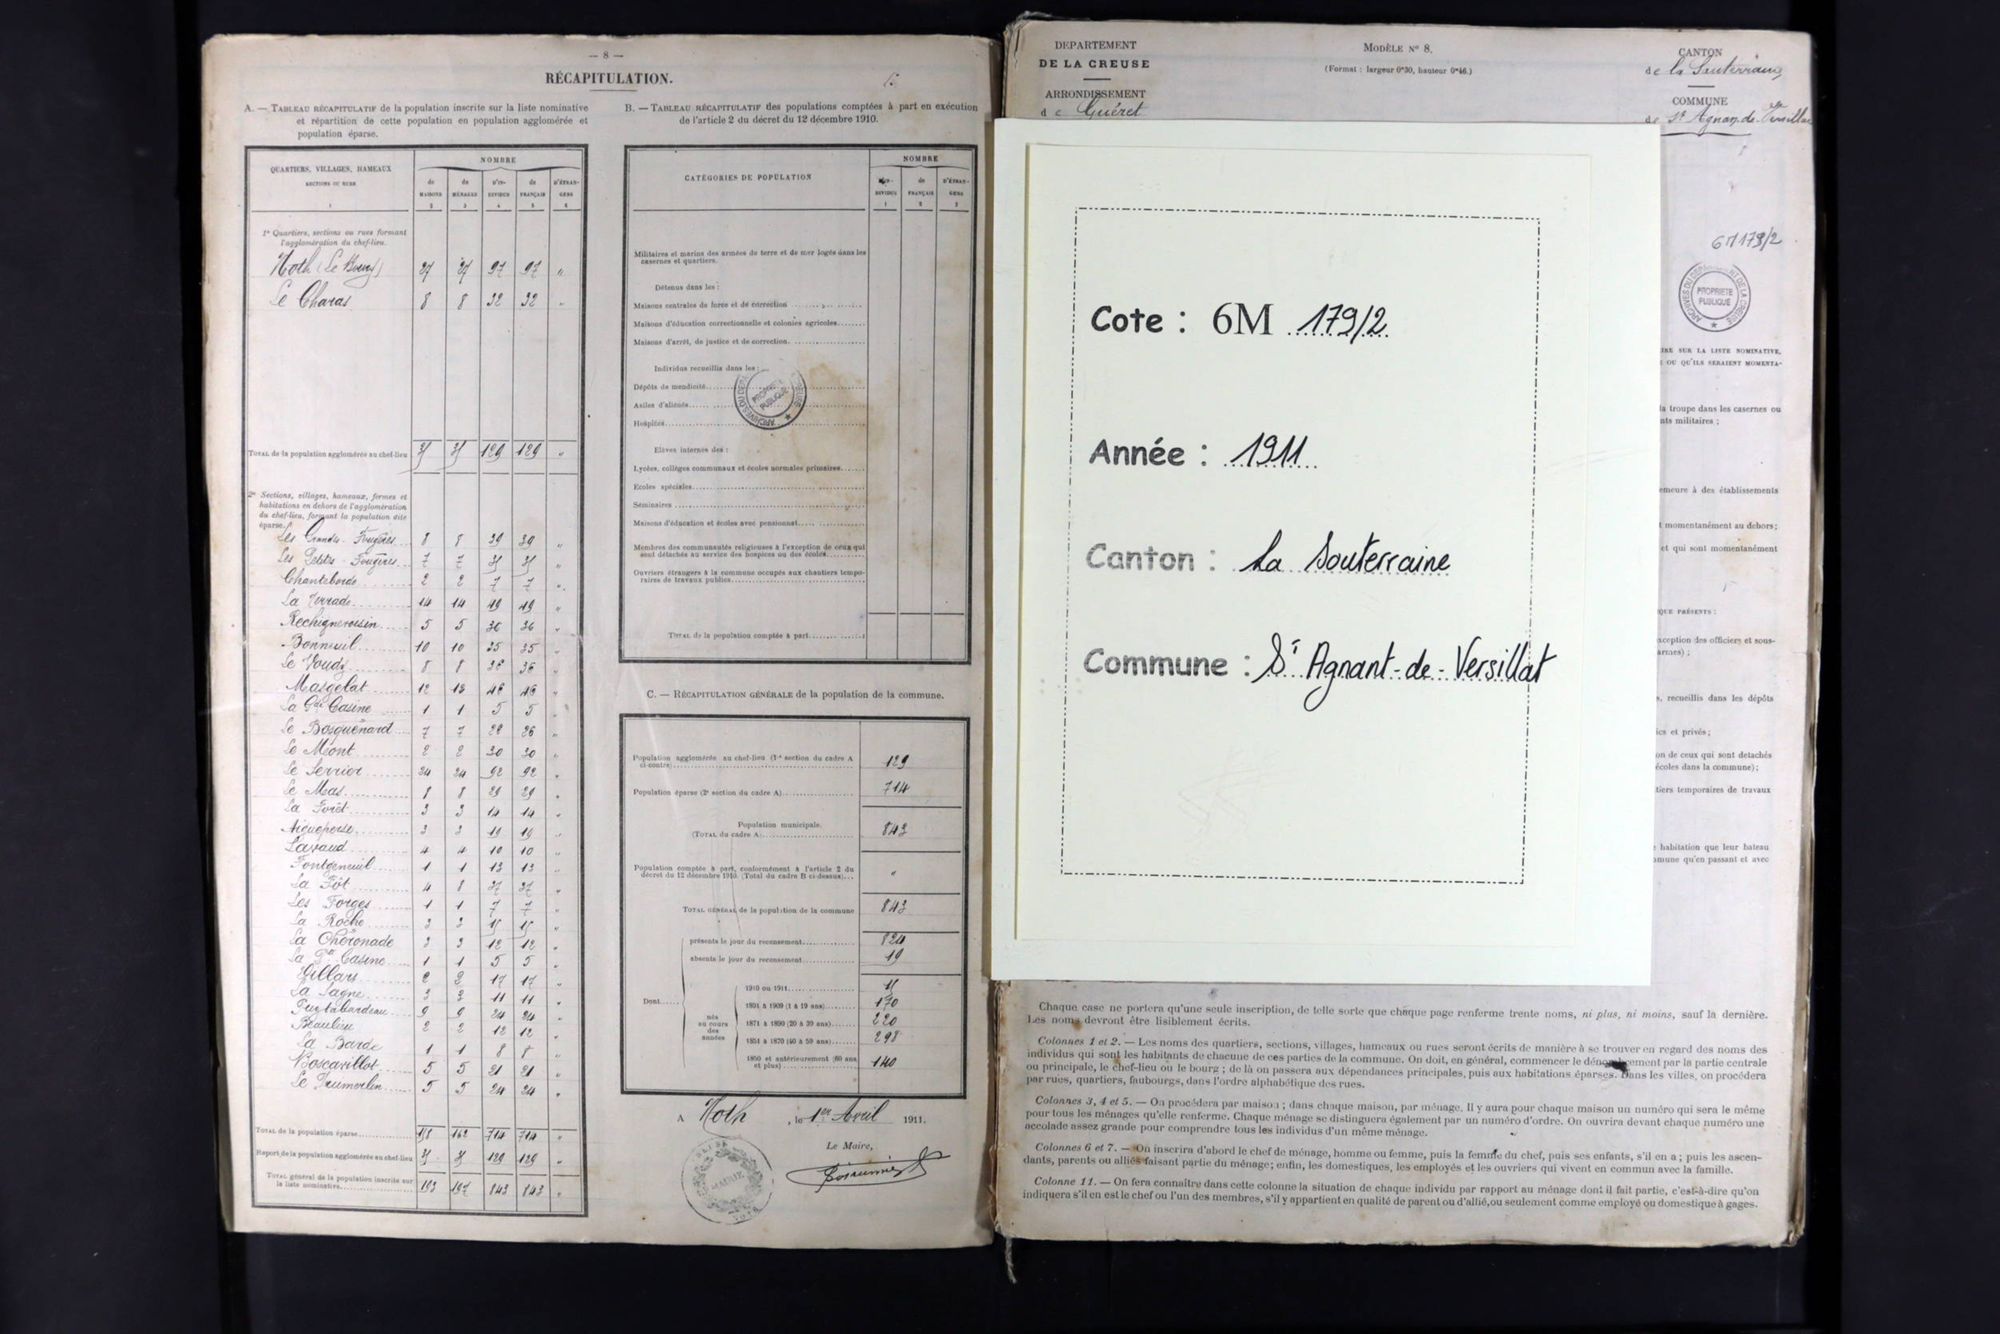 — 8 —
RÉCAPITULATION.
A. — TABLEAU RÉCAPITULATIF de la population inscrite sur la liste nominative
et répartition de cette population en population agglomérée et
population éparse.
QUARTIERS, VILLAGES, HAMEAUX
SECTIONS OU RUES
NOMBRE
de MAISONS
de MÉNAGES
D'IN-DIVIDUS
de FRANÇAIS
D'ÉTRAN-GERS
1 2 3 4 5 6
1° Quartiers, sections ou rues formant
l'agglomération du chef-lieu.
Noth (Le Bourg) 27 27 97 97 "
Le Charas 8 8 32 32 "
TOTAL de la population agglomérée au chef-lieu 35 35 129 129 "
2° Sections, villages, hameaux, fermes et
habitations en dehors de l'agglomération
du chef-lieu, formant la population dite
éparse.
Les Grandes-Fougères 8 8 39 39 "
Les Petites-Fougères 7 7 35 35 "
Chanteborde 2 2 7 7 "
La Terrade 14 14 49 49 "
Rechignevoisin 5 5 36 36 "
Bonneuil 10 10 35 35 "
Le Voudy 8 8 36 36 "
Masgelat 12 13 46 46 "
La Gde Casine 1 1 5 5 "
Le Bosquénard 7 7 26 26 "
Le Mont 2 2 30 30 "
Le Serrier 24 24 92 92 "
Le Mas 8 8 29 29 "
La Forêt 3 3 14 14 "
Aigueperse 3 3 19 19 "
Lavaud 4 4 10 10 "
Fontgeneuil 1 1 13 13 "
La Fôt 4 8 27 27 "
Les Forges 1 1 7 7 "
La Roche 3 3 15 15 "
La Chéronade 3 3 12 12 "
La Pte Casine 1 1 5 5 "
Gillars 2 2 17 17 "
La Sagne 3 3 11 11 "
Puylabardeau 9 9 24 24 "
Beaulieu 2 2 12 12 "
La Barde 1 1 8 8 "
Boscavillot 5 5 21 21 "
Le Trumorlin 5 5 24 24 "
TOTAL de la population éparse 158 162 714 714 "
Report de la population agglomérée au chef-lieu 35 35 129 129 "
TOTAL général de la population inscrite sur
la liste nominative 193 197 843 843 "
B. — TABLEAU RÉCAPITULATIF des populations comptées à part en exécution
de l'article 2 du décret du 12 décembre 1910.
CATÉGORIES DE POPULATION
NOMBRE
D'IN-DIVIDUS
de FRANÇAIS
D'ÉTRAN-GERS
1 2 3
Militaires et marins des armées de terre et de mer logés dans les
casernes et quartiers.
Détenus dans les :
Maisons centrales de force et de correction
Maisons d'éducation correctionnelle et colonies agricoles
Maisons d'arrêt, de justice et de correction.
Individus recueillis dans les :
Dépôts de mendicité
Asiles d'aliénés
Hospices
ARCHIVES DU DÉPA
CREUSE
PROPRIÉTÉ
PUBLIQUE
Élèves internes des :
Lycées, collèges communaux et écoles normales primaires
Écoles spéciales
Séminaires
Maisons d'éducation et écoles avec pensionnat
Membres des communautés religieuses à l'exception de ceux qui
sont détachés au service des hospices ou des écoles
Ouvriers étrangers à la commune occupés aux chantiers tempo-
raires de travaux publics
TOTAL de la population comptée à part
C. — RÉCAPITULATION GÉNÉRALE de la population de la commune.
Population agglomérée au chef-lieu (1re section du cadre A
ci-contre) 129
Population éparse (2e section du cadre A) 714
Population municipale.
(TOTAL du cadre A) 843
Population comptée à part, conformément à l'article 2 du
décret du 12 décembre 1910. (Total du cadre B ci-dessus) "
TOTAL GÉNÉRAL de la population de la commune 843
Dont
présents le jour du recensement 824
absents le jour du recensement 19
nés
au cours
des
années
1910 ou 1911 15
1891 à 1909 (1 à 19 ans) 170
1871 à 1890 (20 à 39 ans) 220
1851 à 1870 (40 à 59 ans) 298
1850 et antérieurement (60 ans
et plus) 140
A Noth, le 1er Avril 1911.
Le Maire,
MAIRIE
DEPARTEMENT
DE LA CREUSE
ARRONDISSEMENT
de Guéret
MODÈLE N° 8.
(Format : largeur 0m30, hauteur 0m46.)
CANTON
de la Souterraine
COMMUNE
de St Agnan de Versillat
6M179/2
ARCHIVES DU DÉPARTEMENT DE LA CREUSE
PROPRIETE
PUBLIQUE
Cote : 6M 179/2
Année : 1911
Canton : La Souterraine
Commune : St Agnant-de-Versillat
IRE SUR LA LISTE NOMINATIVE,
OU QU'ILS SERAIENT MOMENTA-
la troupe dans les casernes ou
nts militaires ;
emeure à des établissements
t momentanément au dehors ;
et qui sont momentanément
QUE PRÉSENTS :
xception des officiers et sous-
armes) ;
s, recueillis dans les dépôts
ics et privés ;
on de ceux qui sont détachés
écoles dans la commune) ;
tiers temporaires de travaux
e habitation que leur bateau
mmune qu'en passant et avec
Chaque case ne portera qu'une seule inscription, de telle sorte que chaque page renferme trente noms, ni plus, ni moins, sauf la dernière.
Les noms devront être lisiblement écrits.
Colonnes 1 et 2. — Les noms des quartiers, sections, villages, hameaux ou rues seront écrits de manière à se trouver en regard des noms des
individus qui sont les habitants de chacune de ces parties de la commune. On doit, en général, commencer le dénombrement par la partie centrale
ou principale, le chef-lieu ou le bourg ; de là on passera aux dépendances principales, puis aux habitations éparses. Dans les villes, on procédera
par rues, quartiers, faubourgs, dans l'ordre alphabétique des rues.
Colonnes 3, 4 et 5. — On procédera par maison ; dans chaque maison, par ménage. Il y aura pour chaque maison un numéro qui sera le même
pour tous les ménages qu'elle renferme. Chaque ménage se distinguera également par un numéro d'ordre. On ouvrira devant chaque numéro une
accolade assez grande pour comprendre tous les individus d'un même ménage.
Colonnes 6 et 7. — On inscrira d'abord le chef de ménage, homme ou femme, puis la femme du chef, puis ses enfants, s'il en a ; puis les ascen-
dants, parents ou alliés faisant partie du ménage ; enfin, les domestiques, les employés et les ouvriers qui vivent en commun avec la famille.
Colonne 11. — On fera connaître dans cette colonne la situation de chaque individu par rapport au ménage dont il fait partie, c'est-à-dire qu'on
indiquera s'il en est le chef ou l'un des membres, s'il y appartient en qualité de parent ou d'allié, ou seulement comme employé ou domestique à gages.